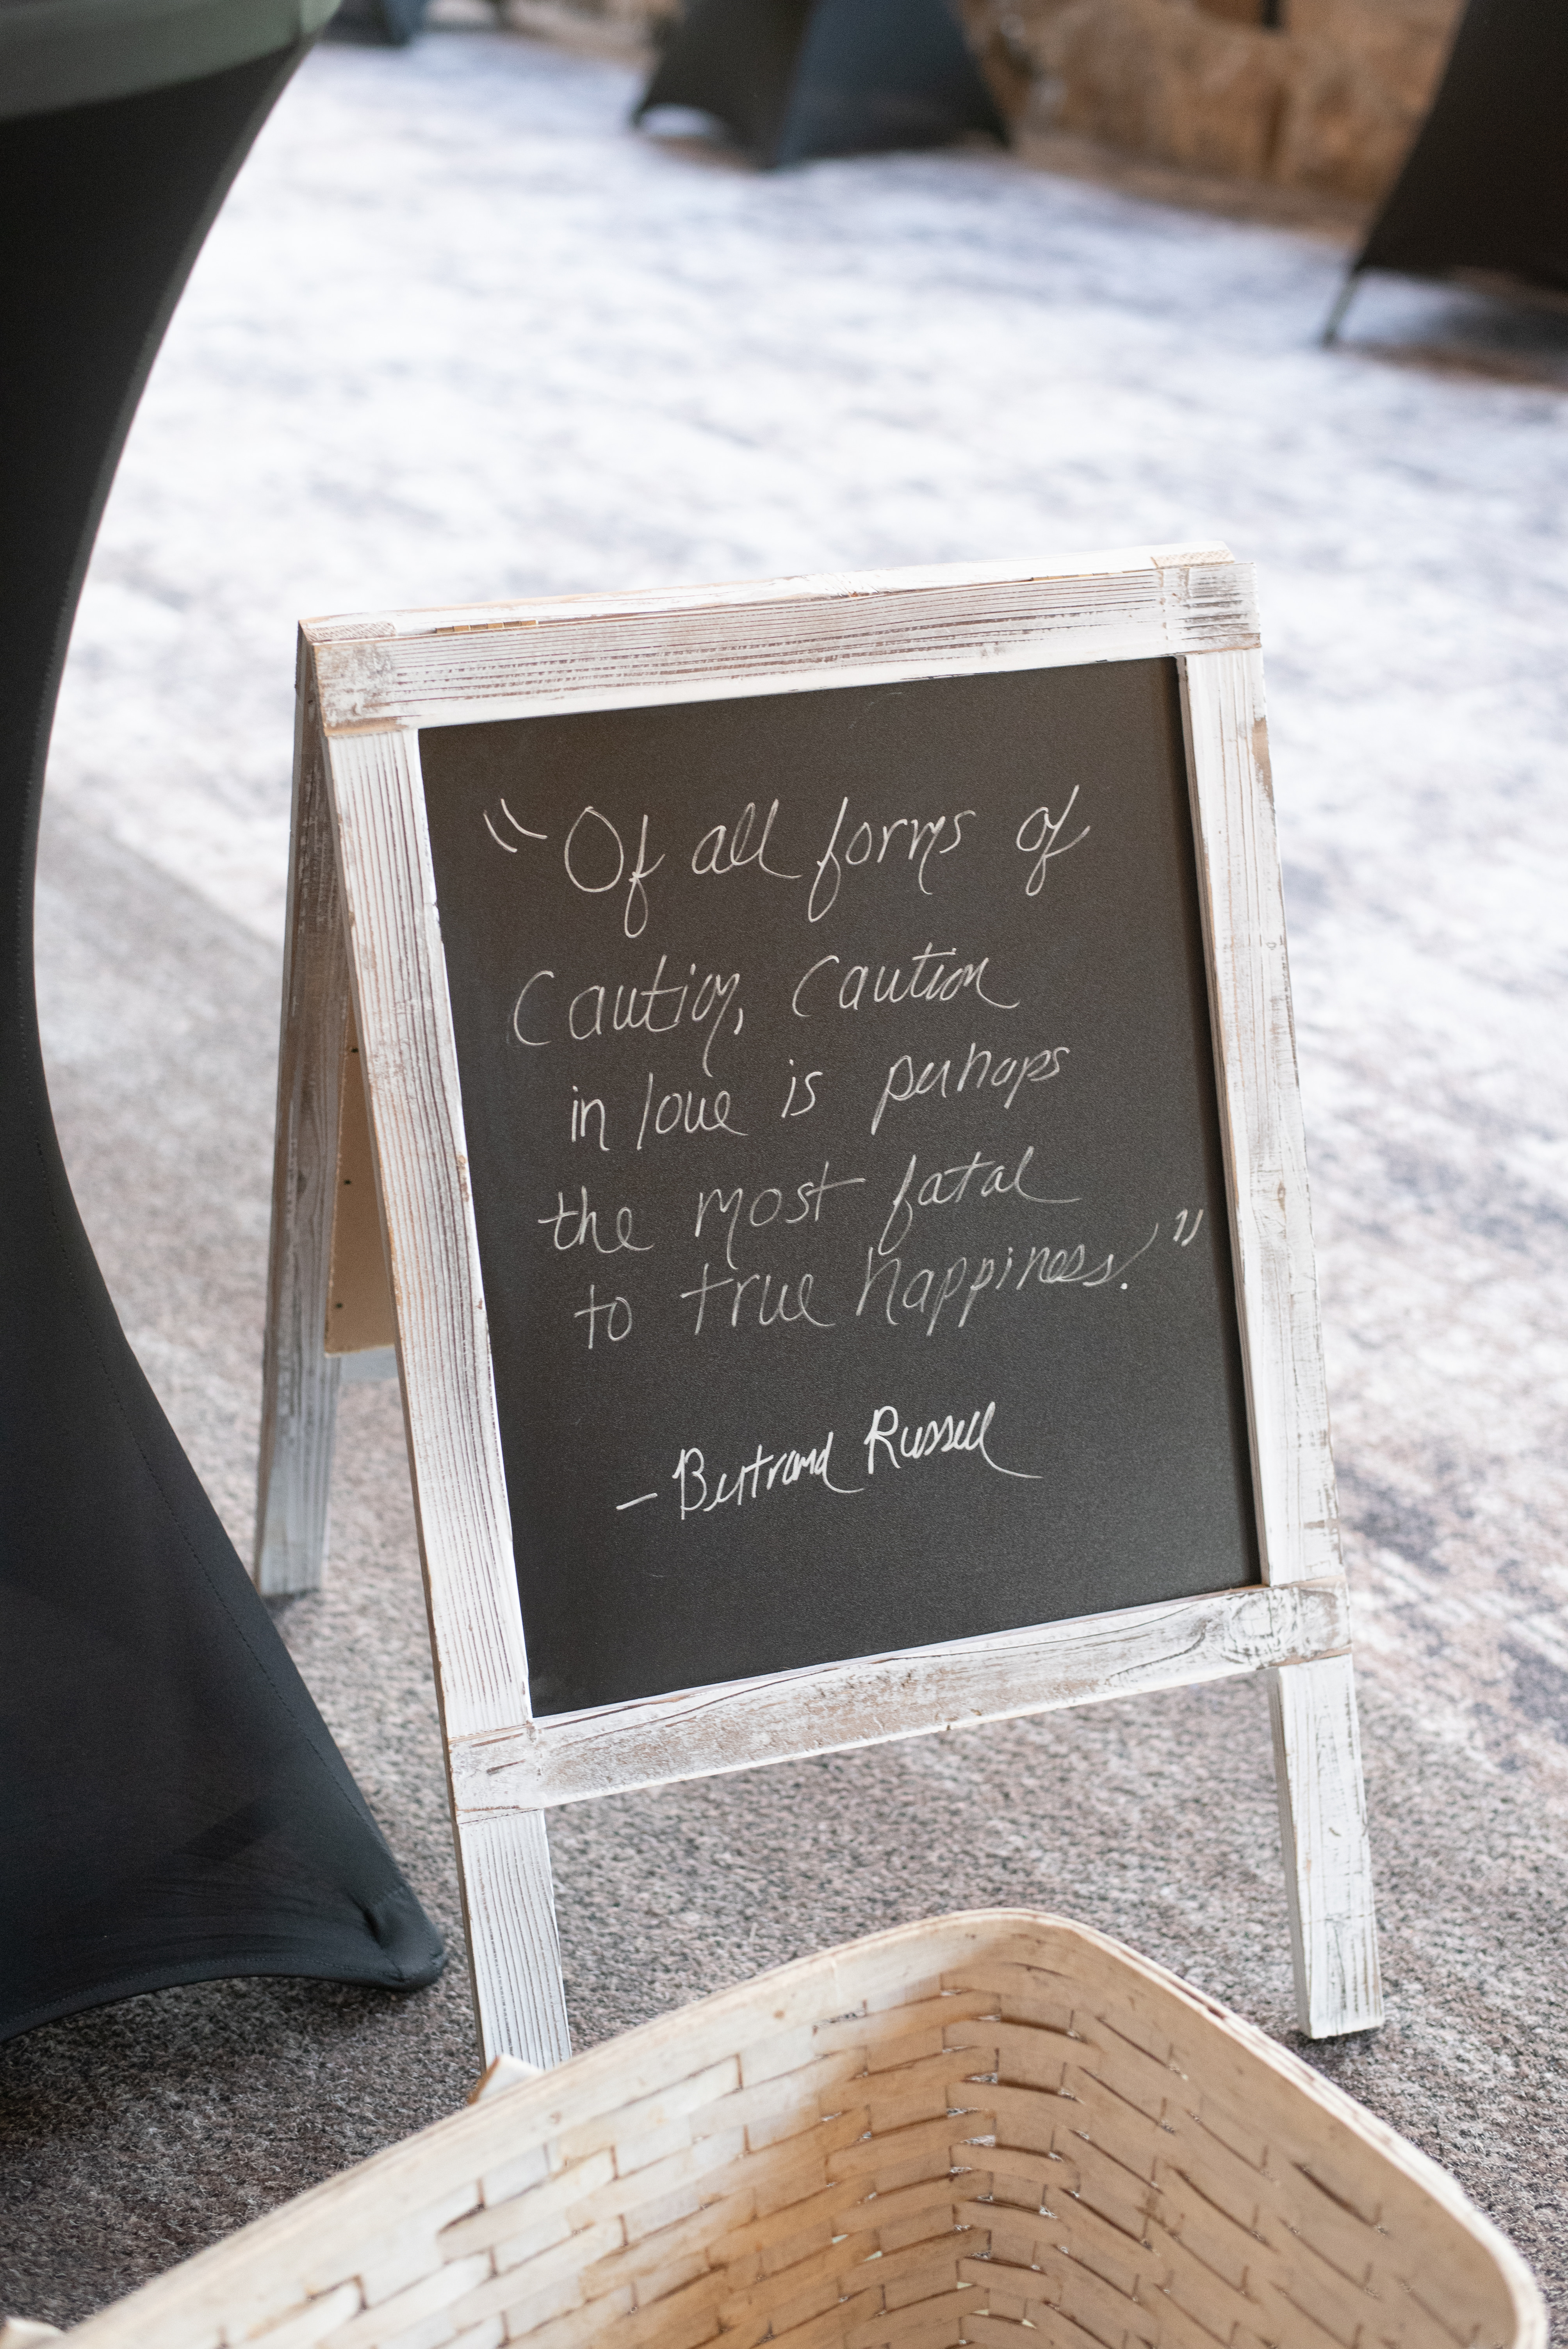 "Of all forms of
Caution, Caution
in love is perhaps
the most fatal
to true happiness."
— Bertrand Russell